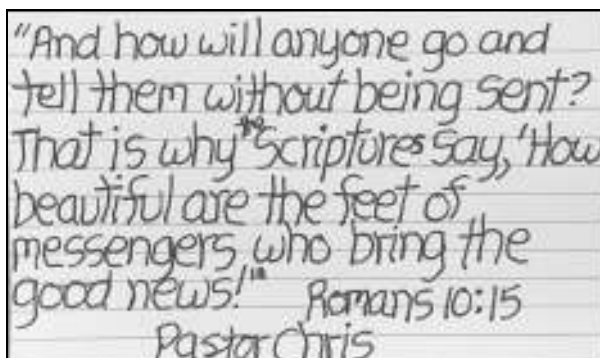 "And how will anyone go and
tell them without being sent?
That is why the Scriptures say, 'How
beautiful are the feet of
messengers who bring the
good news!'" Romans 10:15
Pastor Chris